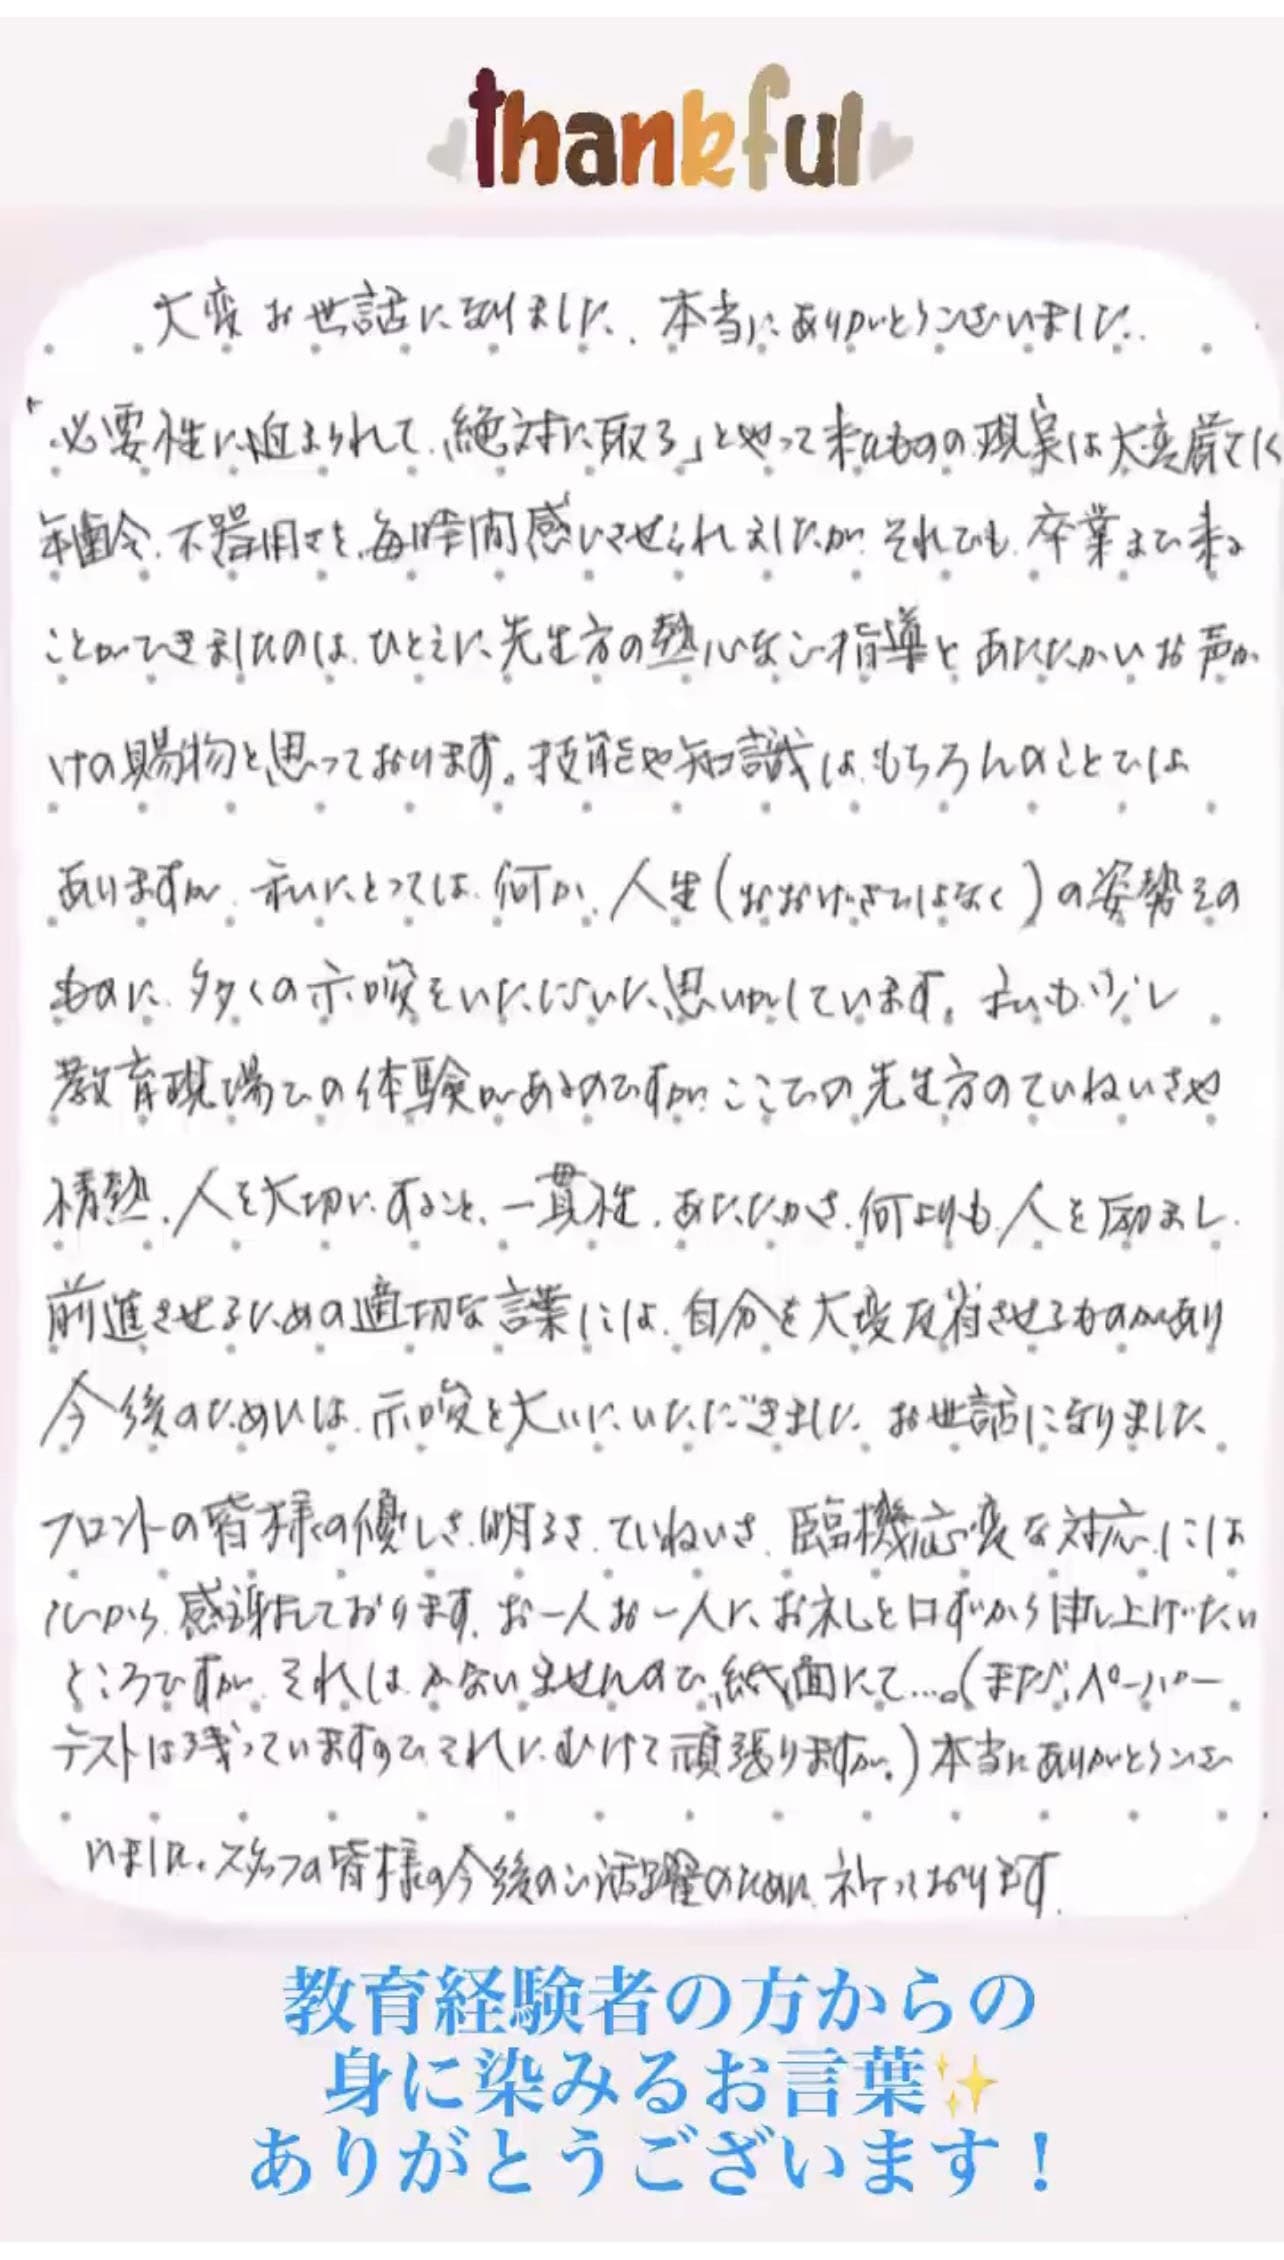 thankful
大変お世話になりました。本当にありがとうございました。
「必要性に迫まられて、絶対に取る」とやって来たものの現実は大変厳しく
年齢、不器用さを、毎時間感じさせられましたが、それでも、卒業まで来る
ことができましたのは、ひとえに、先生方の熱心なご指導とあたたかいお声か
けの賜物と思っております。技能や知識は、もちろんのことでは
ありますが、私にとっては、何か、人生(おおげさではなく)の姿勢その
ものに、多くの示唆をいただいた思いがしています。私も、少し
教育現場での体験があるのですが、ここでの先生方のていねいさや
情熱、人を大切にすること、一貫性、あたたかさ、何よりも、人を励まし、
前進させるための適切な言葉には、自分を大変反省させるものがあり
今後のためには、示唆を大いにいただきました。お世話になりました
フロントの皆様の優しさ、明るさ、ていねいさ、臨機応変な対応には
心から、感謝しております。お一人お一人に、お礼を口ずから申し上げたい
ところですが、それは、かないませんので、紙面にて…。(まだ、ペーパー
テストは残っていますので、それに、むけて頑張りますが。)本当にありがとうござ
いました。スタッフの皆様の今後のご活躍のために、祈っております。
教育経験者の方からの
身に染みるお言葉✨
ありがとうございます！